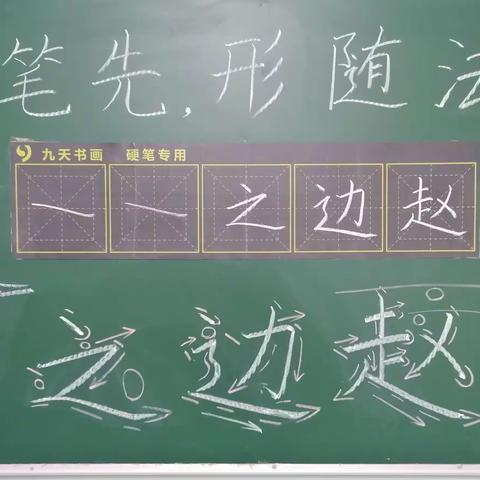 笔先,形随法
九天书画 硬笔专用
之边赵
之边赵